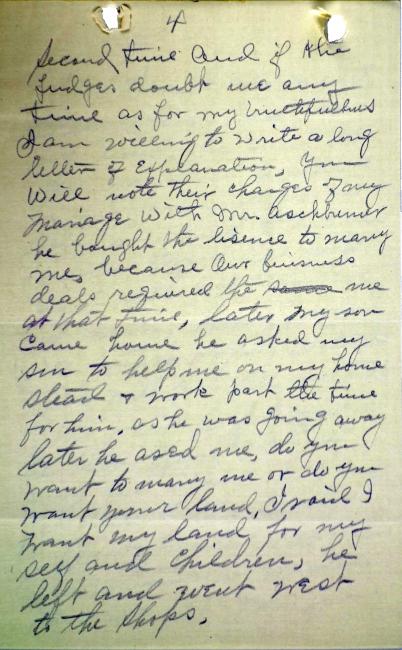 4
Second time and if the
Judges doubt me any
time as for my truthfulnus
I am willing to write a long
letter of Explanation, You
Will note their changes of my
mariage With Mr. Aschbumer
he bought the lisence to marry
me, because Our buisness
deals required the same me
at that time, later my son
Came home he asked my
son to help me on my home
stead & work part the time
for him, as he was going away
later he ased me, do you
want to marry me or do you
want your land, I said I
want my land for my
self and children, he
left and went west
to the shops.